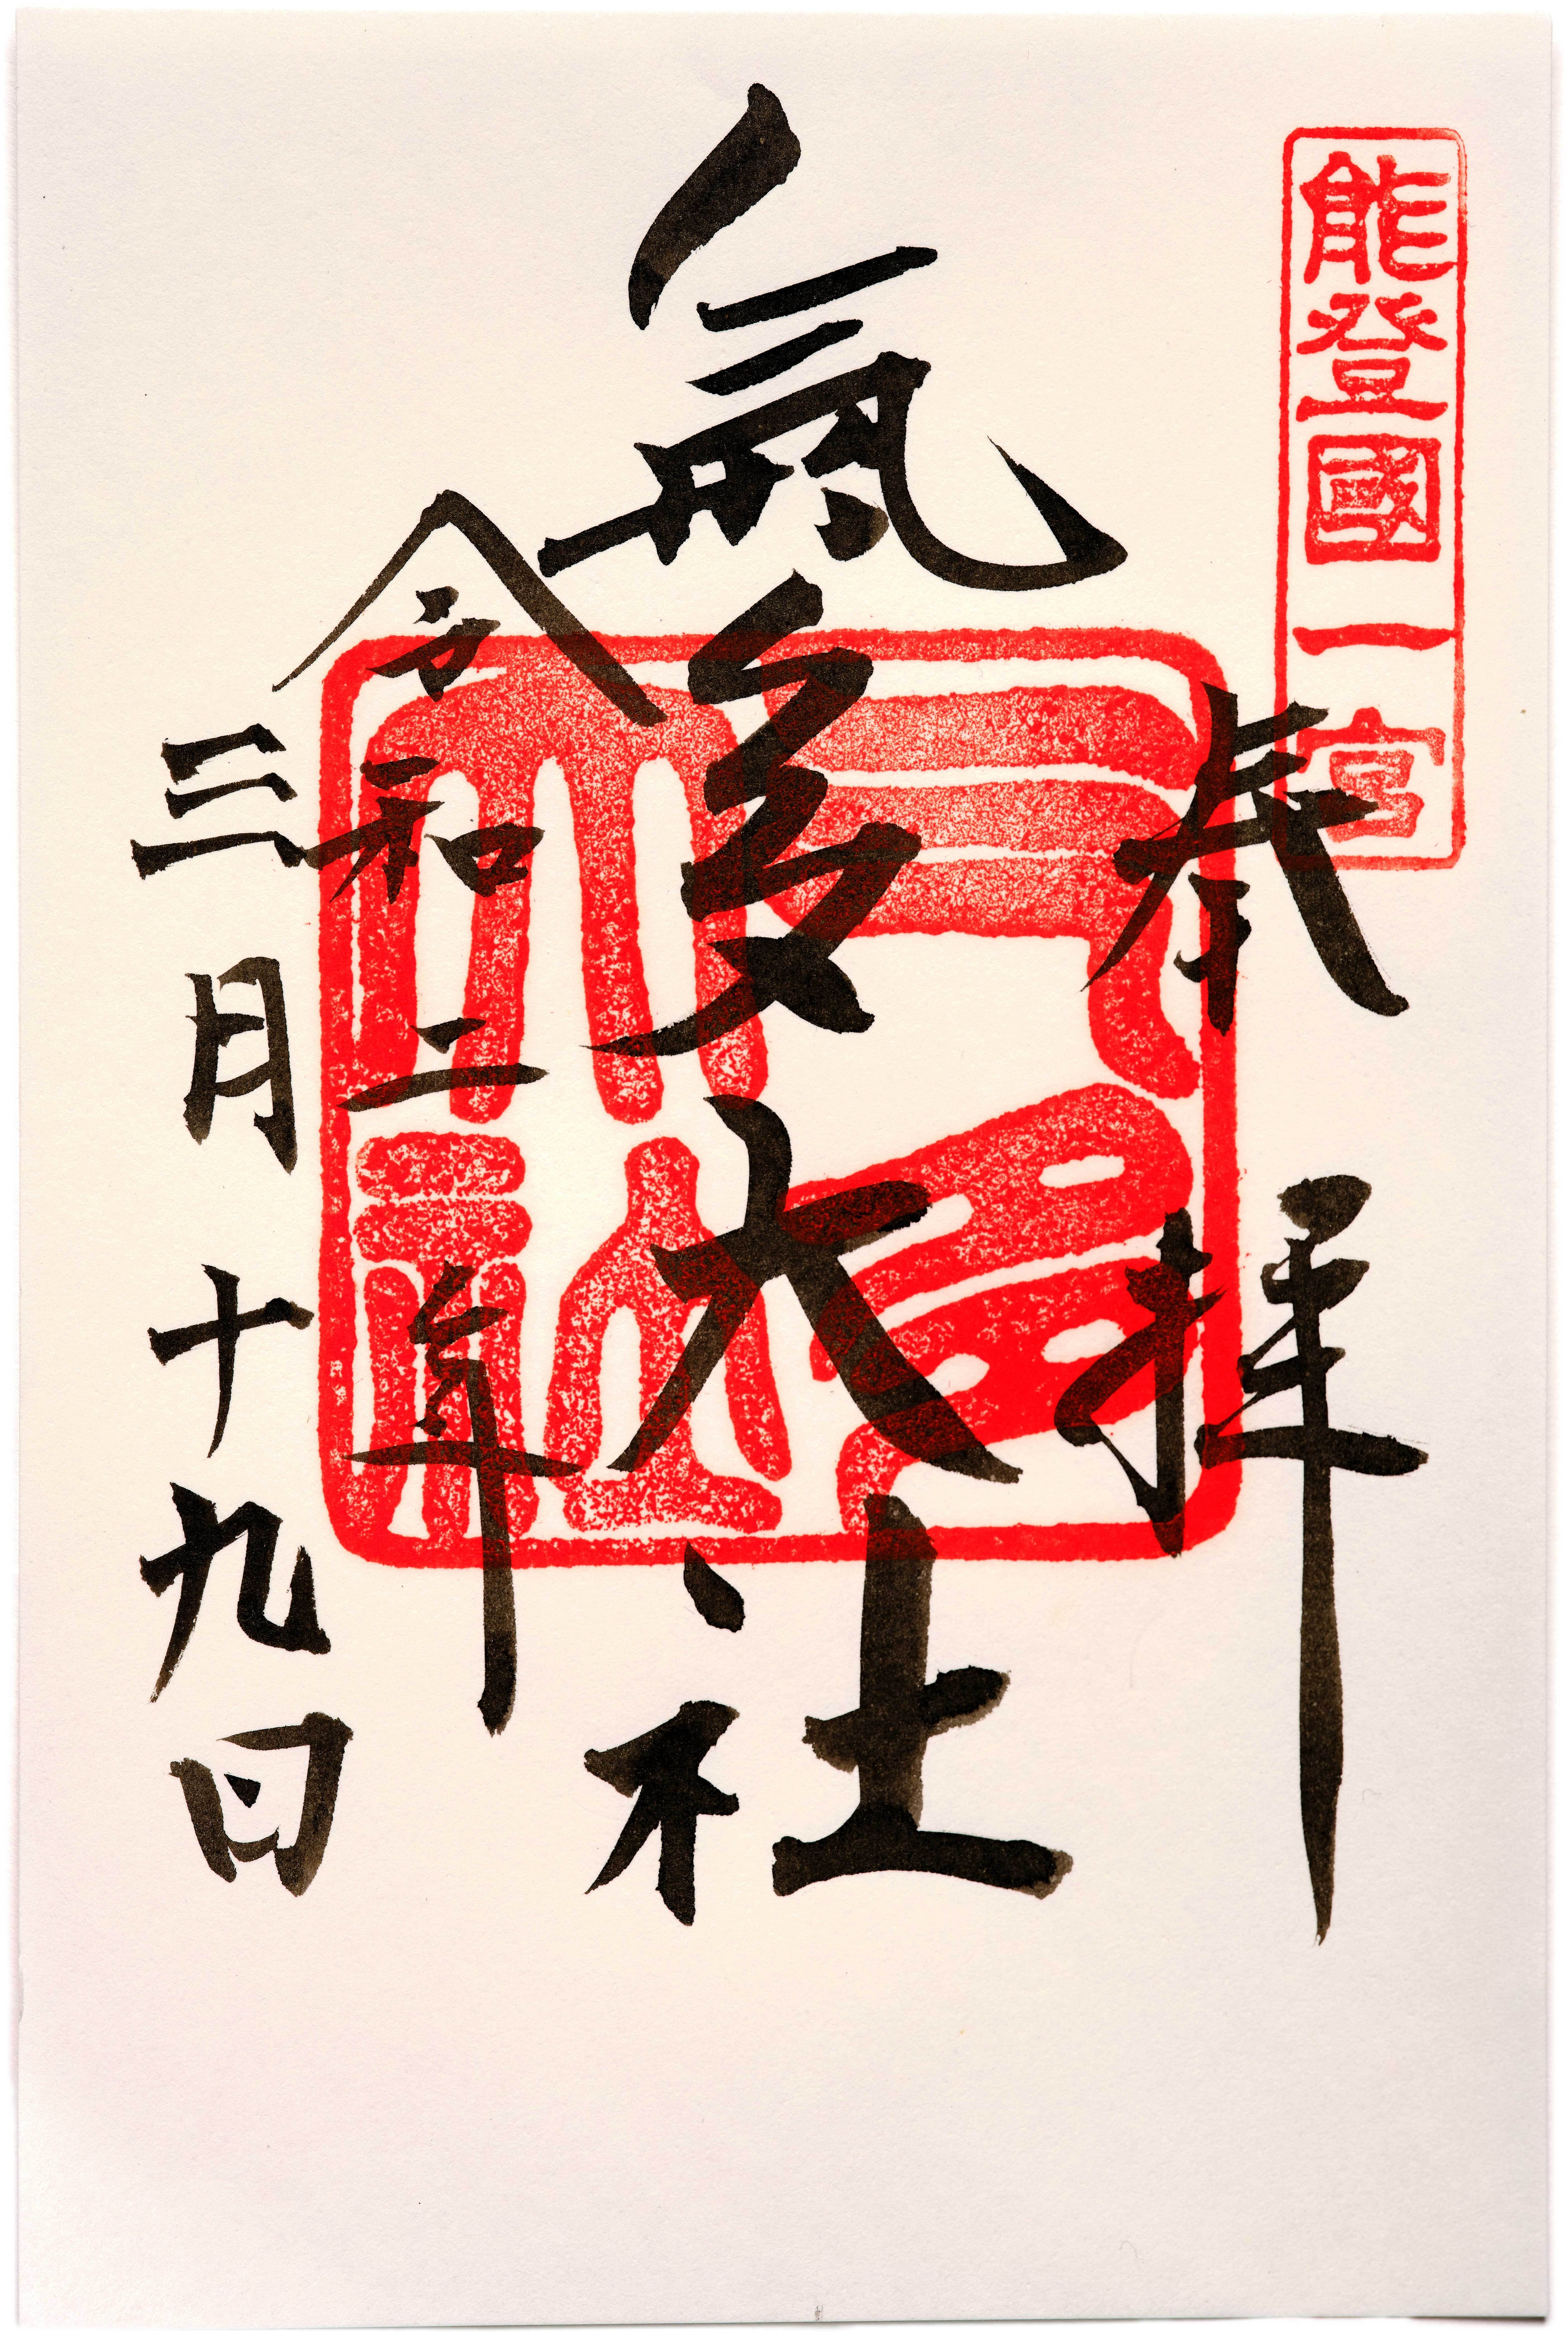 能登國一宮
奉拝
氣多大社
令和二年
三月十九日
氣多大社